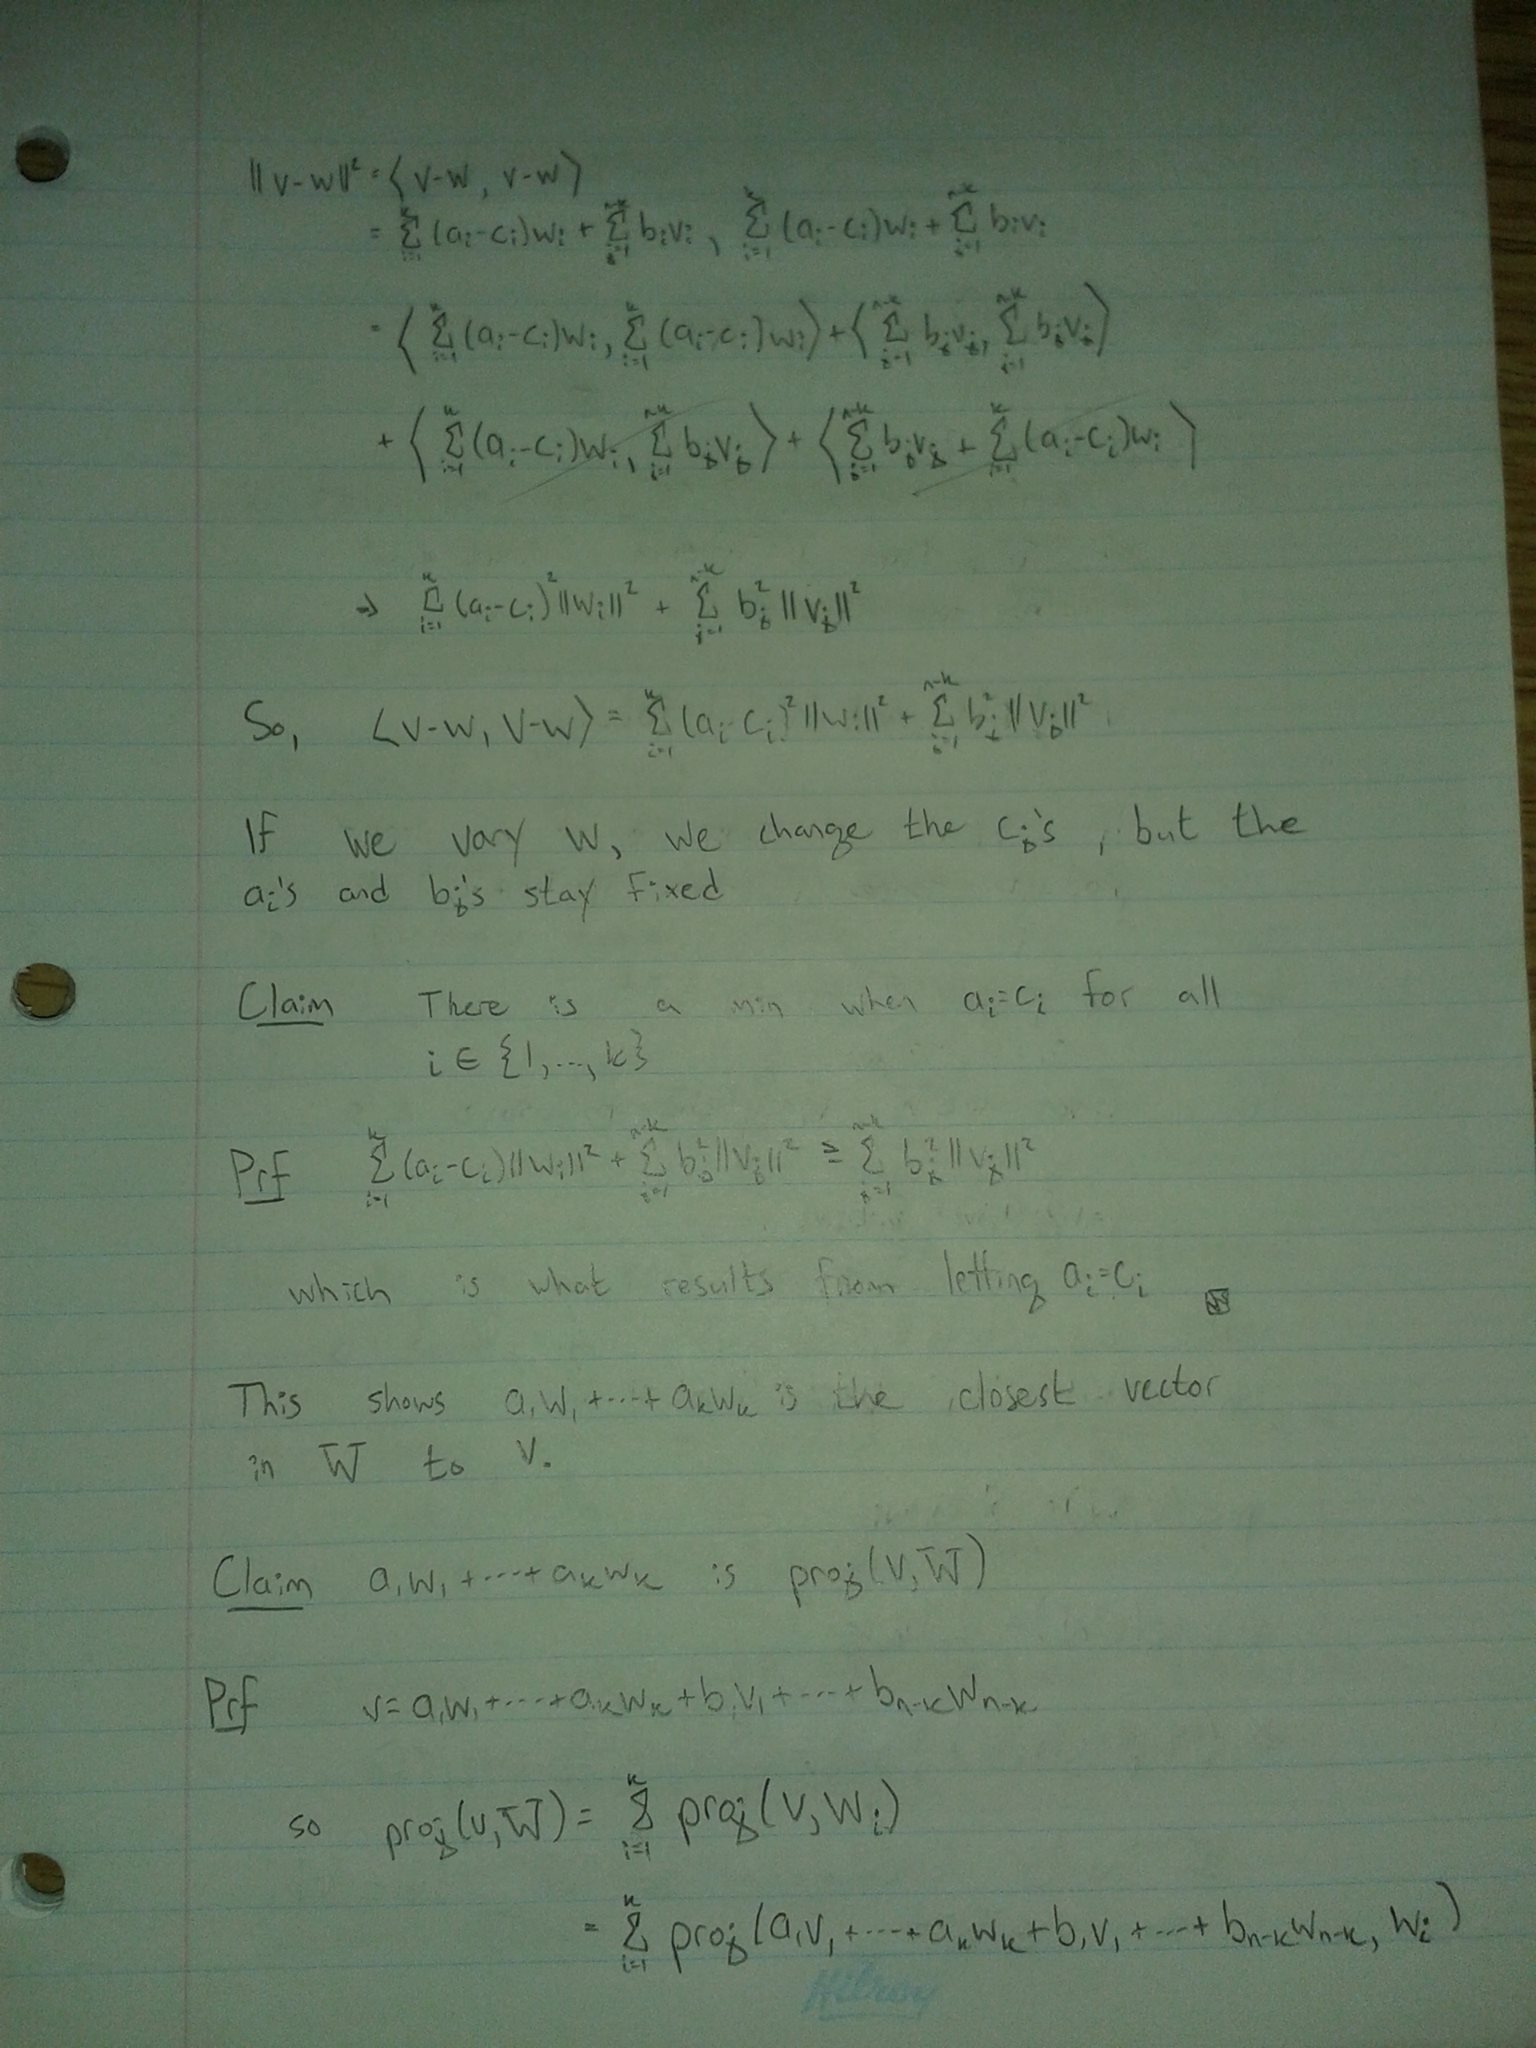 ||v-w||² = ⟨v-w, v-w⟩
= Σ_{i=1}^{k} (aᵢ-cᵢ)wᵢ + Σ_{j=1}^{n-k} bᵢvᵢ, Σ_{i=1}^{k} (aᵢ-cᵢ)wᵢ + Σ_{j=1}^{n-k} bᵢvᵢ
= ⟨Σ_{i=1}^{k} (aᵢ-cᵢ)wᵢ, Σ_{i=1}^{k} (aᵢ-cᵢ)wᵢ⟩ + ⟨Σ_{j=1}^{n-k} bⱼvⱼ, Σ_{j=1}^{n-k} bⱼvⱼ⟩
+ ⟨Σ_{i=1}^{k} (aᵢ-cᵢ)wᵢ, Σ_{j=1}^{n-k} bⱼvⱼ⟩ + ⟨Σ_{j=1}^{n-k} bⱼvⱼ + Σ_{i=1}^{k} (aᵢ-cᵢ)wᵢ⟩
→ Σ_{i=1}^{k} (aᵢ-cᵢ)²||wᵢ||² + Σ_{j=1}^{n-k} bⱼ² ||vⱼ||²
So, ⟨v-w, v-w⟩ = Σ_{i=1}^{k} (aᵢ-cᵢ)²||wᵢ||² + Σ_{j=1}^{n-k} bⱼ² ||vⱼ||²
If we vary w, we change the cⱼ's, but the
aᵢ's and bⱼ's stay fixed
Claim There is a min when aᵢ=cᵢ for all
i ∈ {1,...,k}
Prf Σ_{i=1}^{k} (aᵢ-cᵢ)||wᵢ||² + Σ_{j=1}^{n-k} bⱼ²||vⱼ||² ≥ Σ_{j=1}^{n-k} bⱼ² ||vⱼ||²
which is what results from letting aᵢ=cᵢ
This shows a₁w₁+...+aₖwₖ is the closest vector
in W to v.
Claim a₁w₁+...+aₖwₖ is proj(v,W)
Prf v=a₁w₁+...+aₖwₖ+b₁v₁+...+bₙ₋ₖwₙ₋ₖ
so proj(v,W) = Σ_{i=1}^{k} proj(v,wᵢ)
= Σ_{i=1}^{k} proj(a₁v₁+...+aₖwₖ+b₁v₁+...+bₙ₋ₖwₙ₋ₖ, wᵢ)
Hilroy